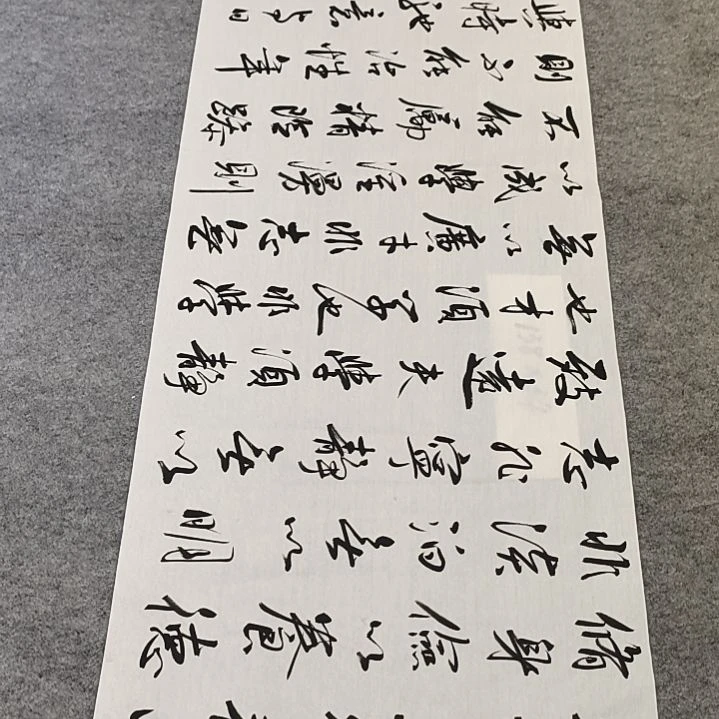 脩身儉以養德
非淡泊無以明
志非寧靜無以
致遠夫學須靜
也才須學也非學
無以廣才非志無
以成學淫漫則
不能勵精險躁
則不能治性年
與時馳意與日